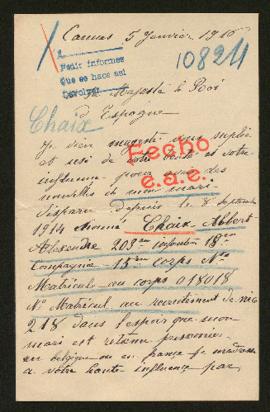 Cannes 5 Janvier 1916
10824
Pedir informes
que se hace asi
Devolver
Majesté le Roi
d'Espagne
Chaix
Je vien supplié
de votre et votre
influence pour avoir des
nouvelles de mon mari
disparu depuis le 8 septembre
Fecho
e.a.e.
1914 nommé Chaix Albert
Alexandre 203me infanterie 18me
Compagnie 15me corps No
Matricule au corps 018018
No Matricul au recrutement de nice
218 dans l'espoir que mon
mari est retenu prisonnier
en belgique ou en france je
a votre haute influence par